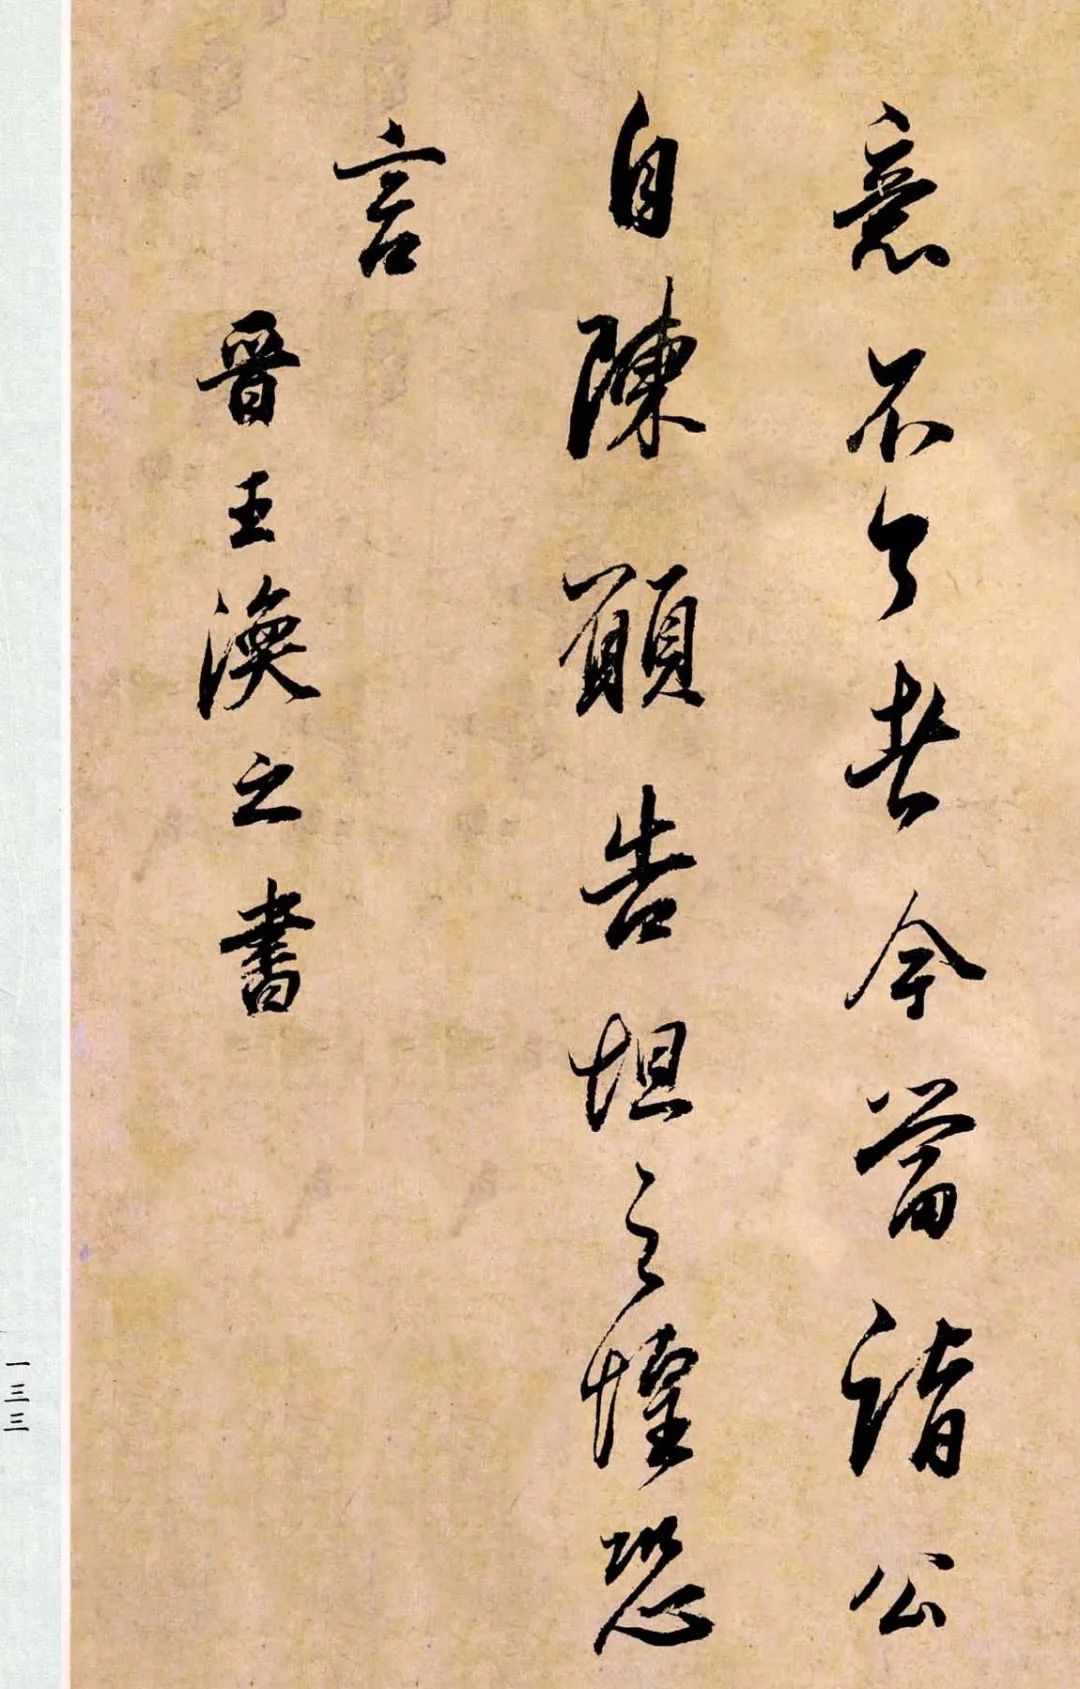 意不了者今當詣公
自陳願告坦之惶恐
言
晉王渙之書
一三三